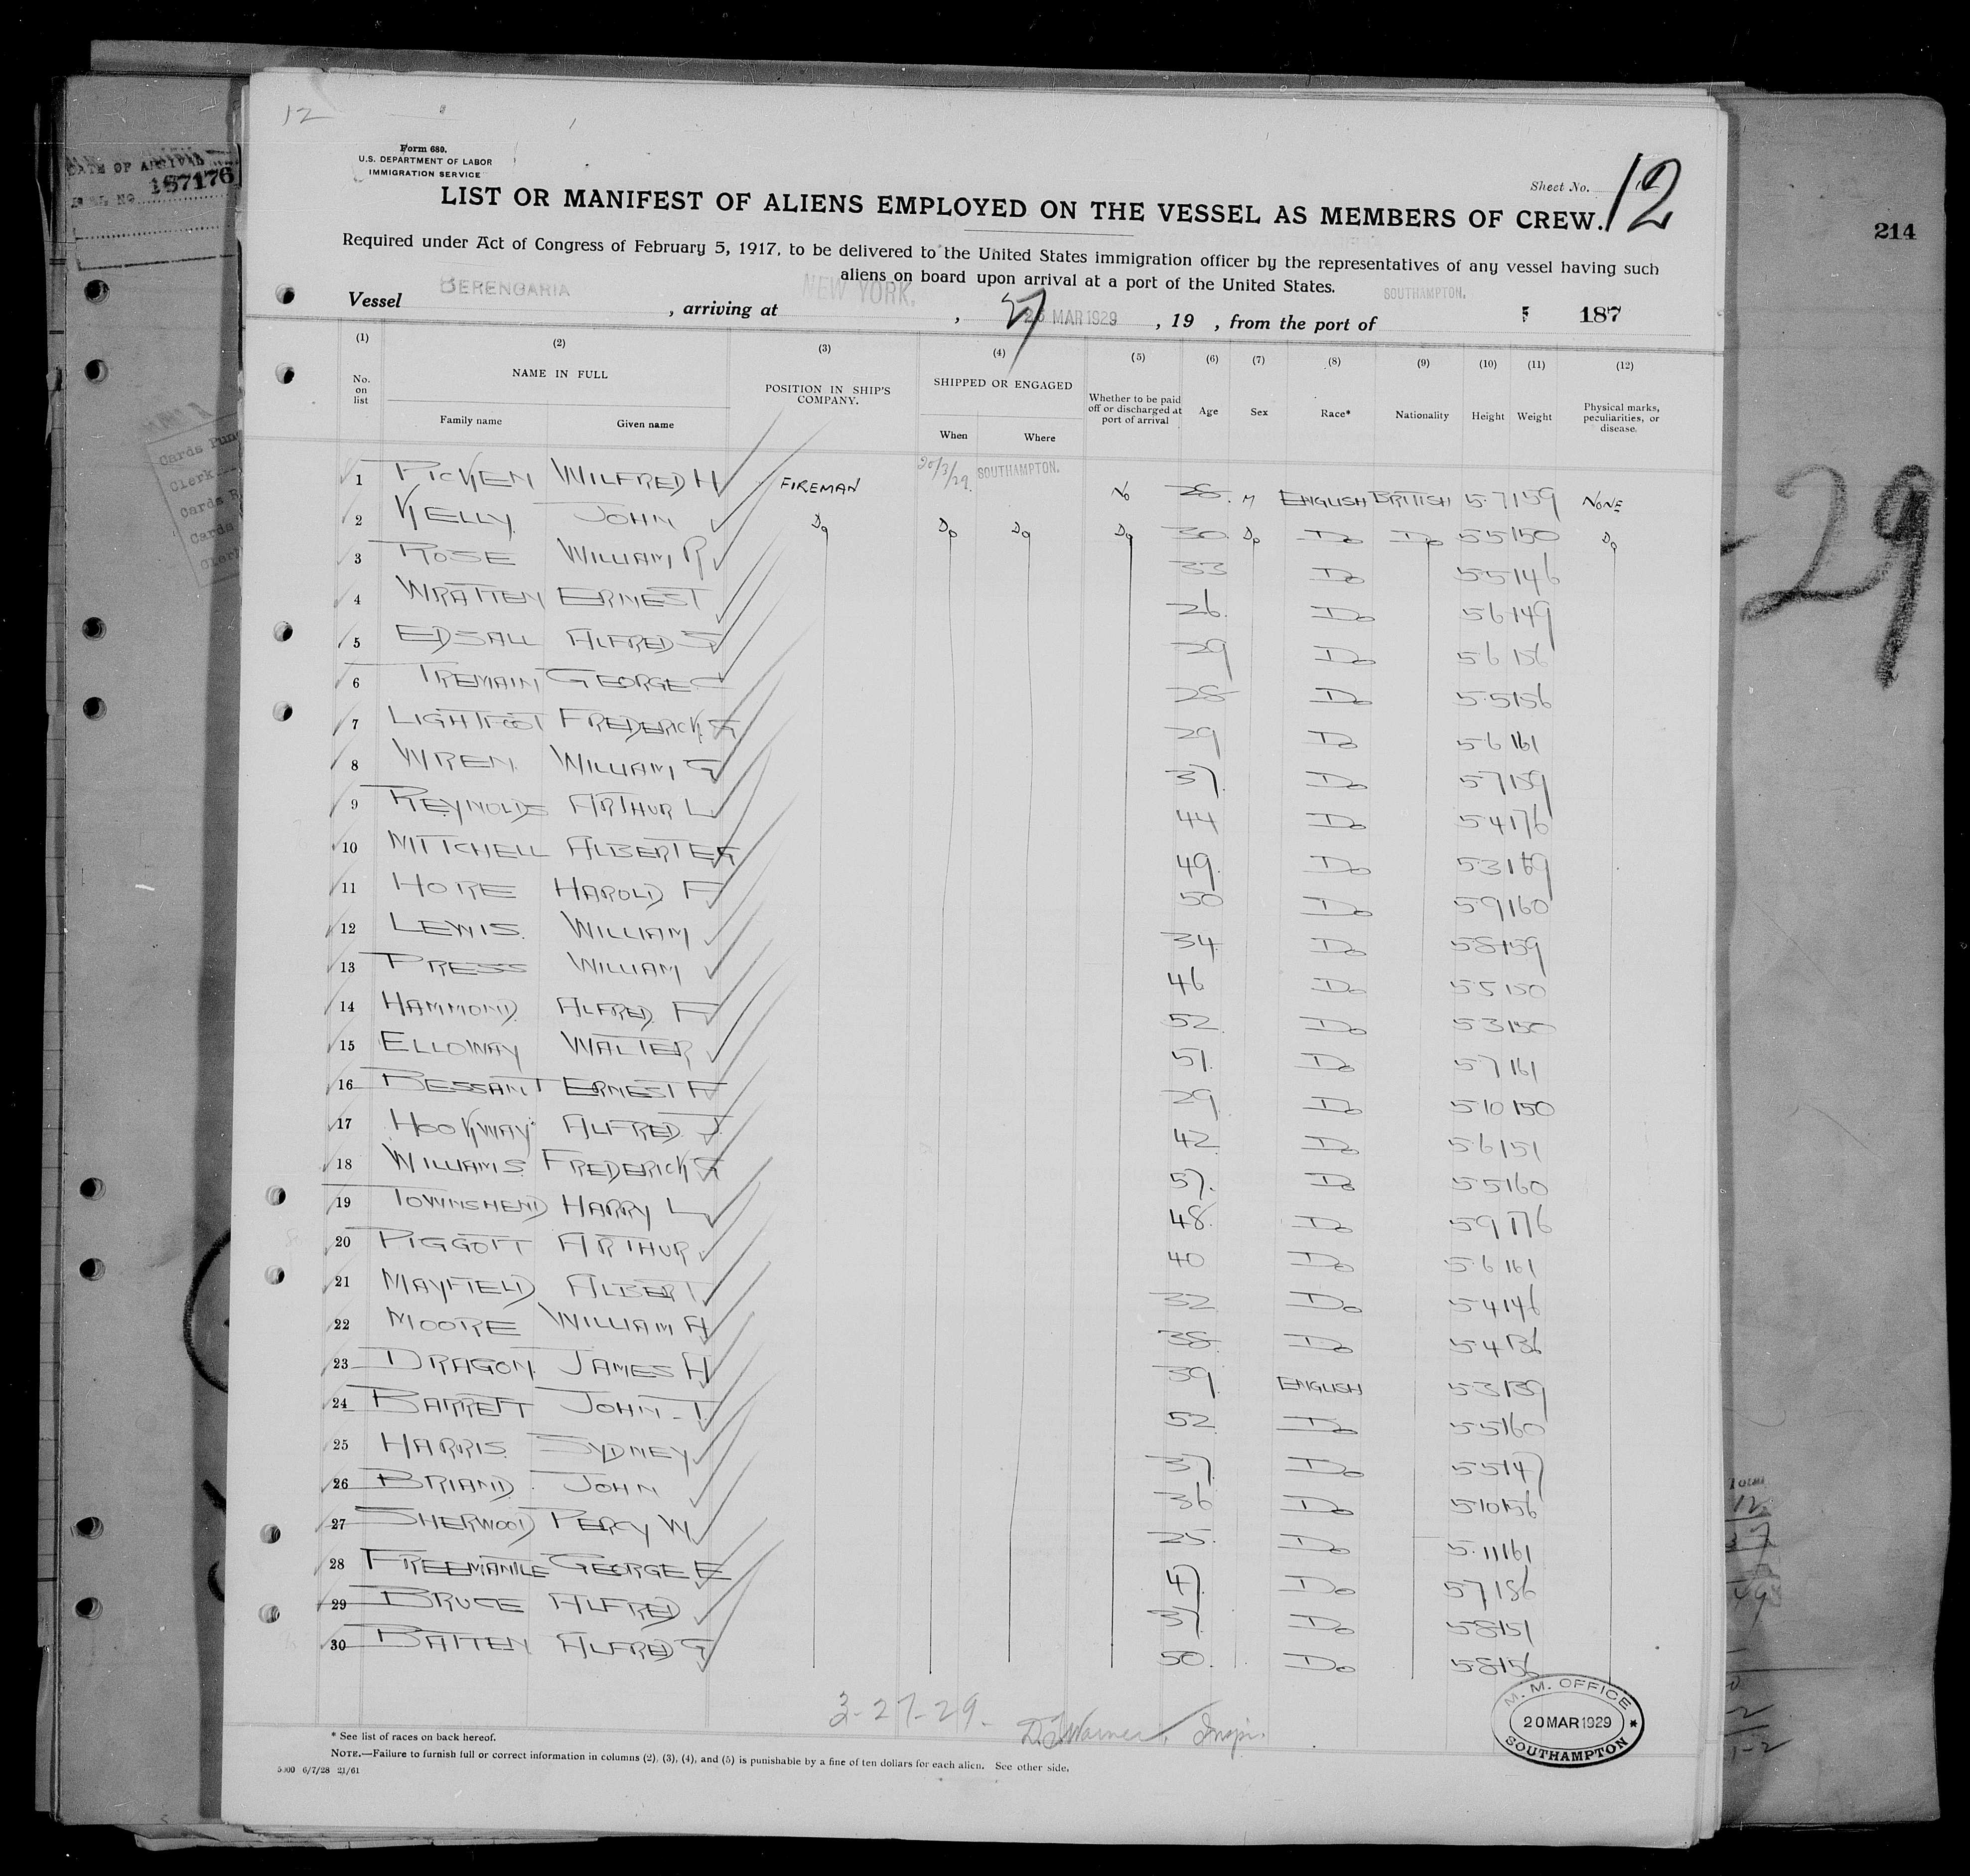 12
Form 680.
U.S. DEPARTMENT OF LABOR
IMMIGRATION SERVICE
Sheet No. 12
LIST OR MANIFEST OF ALIENS EMPLOYED ON THE VESSEL AS MEMBERS OF CREW.
Required under Act of Congress of February 5, 1917, to be delivered to the United States immigration officer by the representatives of any vessel having such
aliens on board upon arrival at a port of the United States.
Vessel BERENGARIA, arriving at NEW YORK, 27 MAR 1929, 19 , from the port of SOUTHAMPTON. 187
(1) (2) (3) (4) (5) (6) (7) (8) (9) (10) (11) (12)
No. on list NAME IN FULL Family name Given name POSITION IN SHIP'S COMPANY. SHIPPED OR ENGAGED When Where Whether to be paid off or discharged at port of arrival Age Sex Race* Nationality Height Weight Physical marks, peculiarities, or disease.
1 PICKEN WILFRED H FIREMAN 20/3/29. SOUTHAMPTON. NO 28. M ENGLISH BRITISH 5.7 159 NONE
2 KELLY. JOHN Do Do Do Do 30 Do Do Do 5 5 150 Do
3 ROSE WILLIAM R 33 Do 5 5 146
4 WRATTEN ERNEST 26. Do 5 6 149
5 EDSALL ALFRED S 29 Do 5 6 156
6 TREMAIN GEORGE C 28 Do 5.5 156
7 LIGHTFOOT FREDERICK. G 29 Do 5 6 161
8 WREN. WILLIAM G 37. Do 5 7 159
9 REYNOLDS ARTHUR L 44 Do 5 4 176
10 MITTCHELL ALBERT E G 49. Do 5 3 169
11 HORE HAROLD F 50 Do 5 9 160
12 LEWIS. WILLIAM 34. Do 5 8 159
13 PRESS WILLIAM 46 Do 5 5 150
14 HAMMOND. ALFRED. F 52. Do 5 3 150
15 ELLOWAY WALTER 51. Do 5 7 161
16 BESSANT ERNEST F 29. Do 5 10 150
17 HOOKWAY ALFRED. J. 42 Do 5 6 151
18 WILLIAMS. FREDERICK G 57. Do 5 5 160
19 TOWNSHEND HARRY L 48. Do 5 9 176
20 PIGGOTT ARTHUR 40 Do 5 6 161
21 MAYFIELD ALBERT 32 Do 5 4 146
22 MOORE WILLIAM A 38. Do 5 4 136
23 DRAGON. JAMES H 39. ENGLISH 5 3 139
24 BARRETT JOHN. T 52. Do 5 5 160
25 HARRIS. SYDNEY 37. Do 5 5 147
26 BRIAND. JOHN 36 Do 5 10 156
27 SHERWOOD PERCY W 25. Do 5. 11 161
28 FREEMANTLE GEORGE E 47. Do 5 7 186
29 BRUCE ALFRED 37. Do 5 8 151
30 BATTEN ALFRED G 50. Do 5 8 156
3-27-29. Inspr.
M. M. OFFICE
20 MAR 1929 *
SOUTHAMPTON
* See list of races on back hereof.
NOTE.—Failure to furnish full or correct information in columns (2), (3), (4), and (5) is punishable by a fine of ten dollars for each alien. See other side.
6/7/28 21/61
DATE OF ARRIVAL
187176
Clerk
214
29